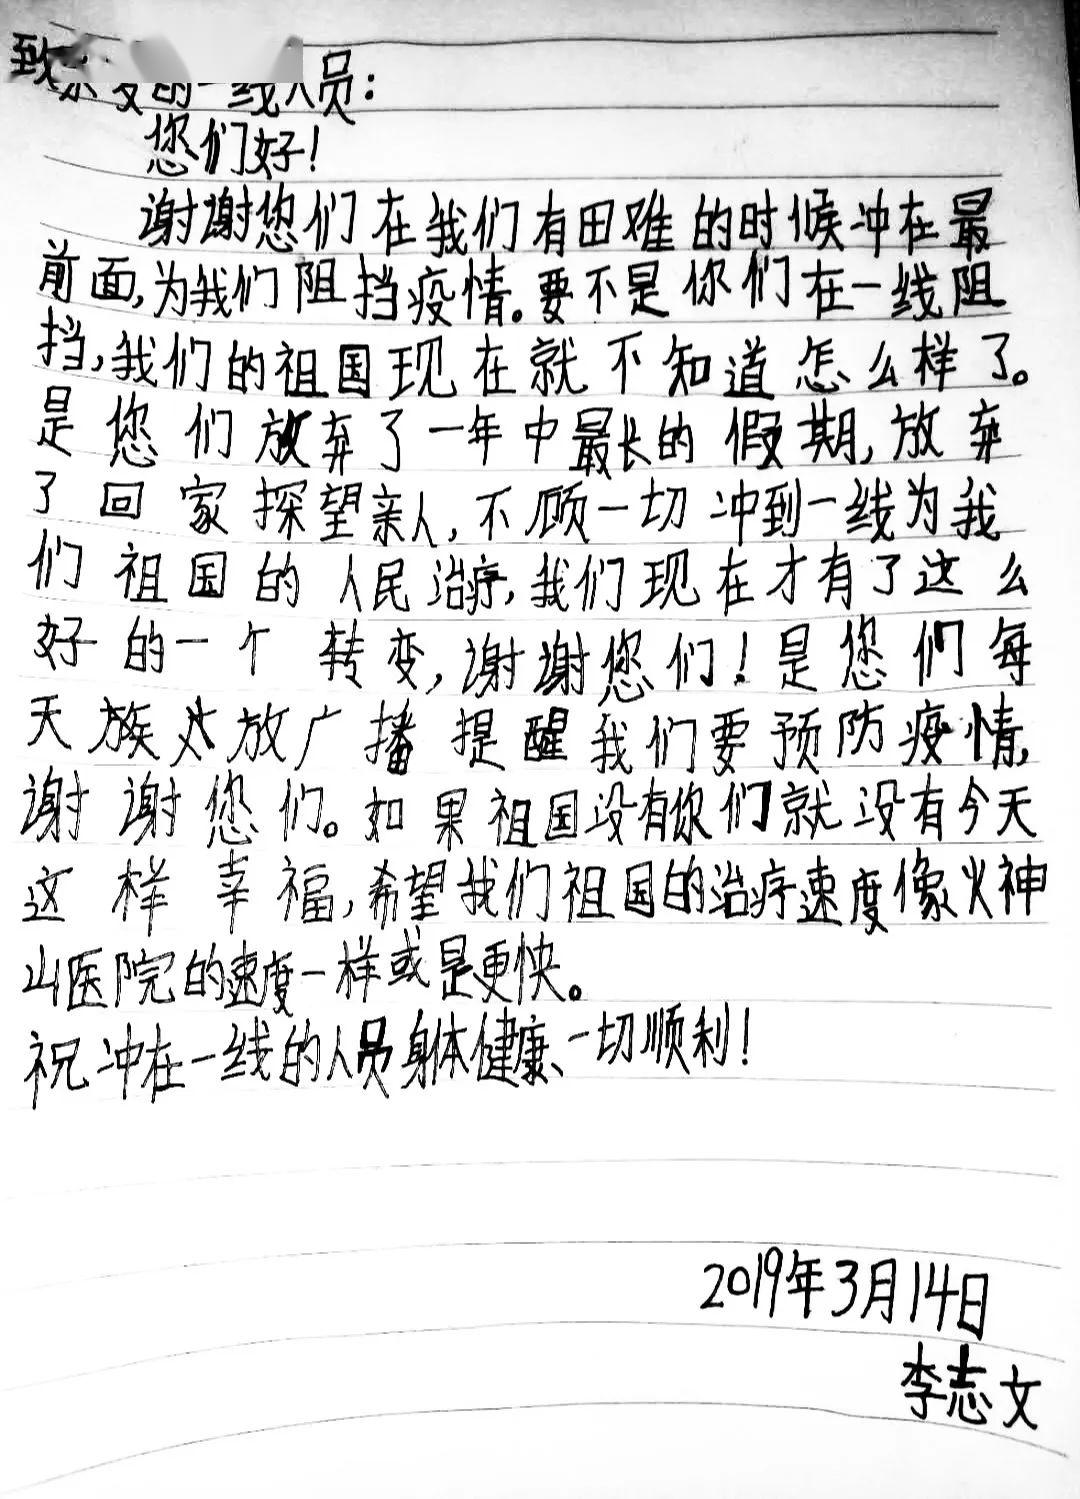 致亲爱的一线人员：
您们好！
谢谢您们在我们有田难的时候冲在最
前面，为我们阻挡疫情。要不是你们在一线阻
挡，我们的祖国现在就不知道怎么样了。
是您们放弃了一年中最长的假期，放弃
了回家探望亲人，不顾一切冲到一线为我
们祖国的人民治疗，我们现在才有了这么
好的一个转变，谢谢您们！是您们每
天族放广播提醒我们要预防疫情，
谢谢您们。如果祖国没有你们就没有今天
这样幸福，希望我们祖国的治疗速度像火神
山医院的速度一样或是更快。
祝冲在一线的人员身体健康、一切顺利！
2019年3月14日
李志文